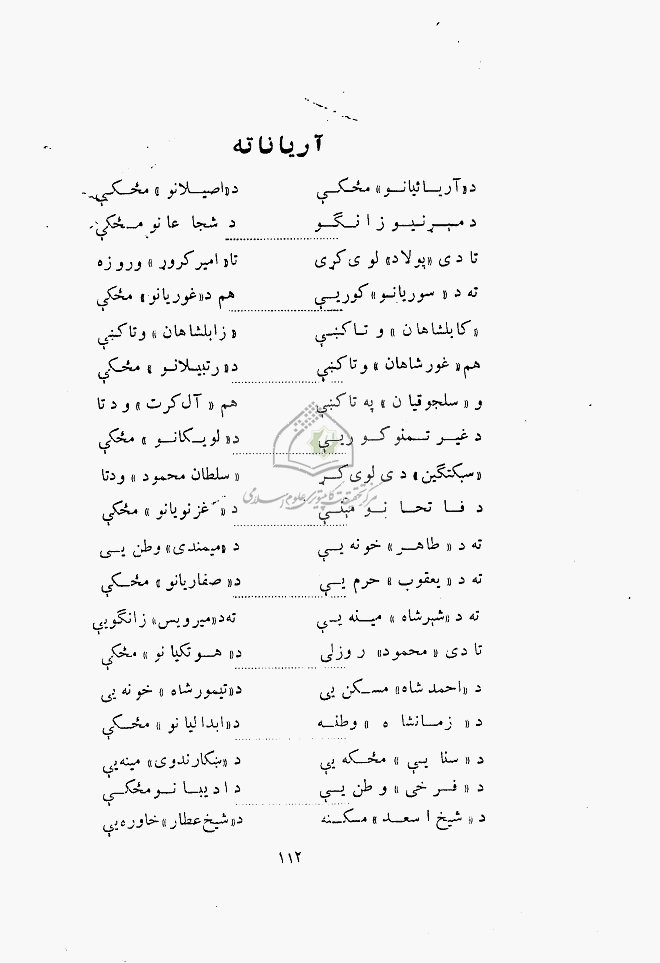 آریاناته
د«آریائیانو» مځکې د«اصیلانو» مځکې
د میړنیو زانگو د شجاعانو مځکې
تا دی «پولاد» لوی کړی تا« امیر کروړ » وروزه
ته د « سوریانو» کوریې هم د«غوریانو» مځکې
«کابلشاهان » و تاکښې « زابلشاهان » وتاکښې
هم« غورشاهان » وتاکښې د« رتبیلانو » مځکې
و « سلجوقیان » په تاکښې هم « آل کرت » و دتا
د غیرتمنو کوریې د« لویکانو » مځکې
«سبکتگین» دی لوی کړ « سلطان محمود » ودتا
د فاتحانو مېنې د « غزنویانو » مځکې
ته د « طاهر » خونه یې د «میمندی» وطن یې
ته د « یعقوب » حرم یې د« صفاریانو » مځکې
ته د «شېرشاه » مینه یې ته د«میرویس» زانگویې
تا دی « محمود» روزلی د« هوتکیانو » مځکې
د «احمد شاه» مسکن یې د«تیمورشاه » خونه یې
د« زمانشاه » وطنه د« ابدالیانو » مځکې
د « سنایې » مځکه یې د «ښکارندوی» مینه یې
د « فرخی » وطن یې د ادیبانو مځکې
د « شیخ اسعد » مسکنه د« شیخ عطار » خاوره یې
۱۱۲
مرکز تحقیقات کامپیوتری علوم اسلامی